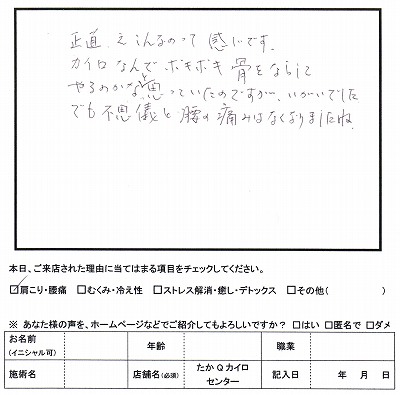 正直、え こんなのって 感じです。
カイロなんで ボキボキ 骨をならして
やるのかなと思っていたのですが、いがいでした
でも不思儀と腰の痛みはなくなりましたね
本日、ご来店された理由に当てはまる項目をチェックしてください。
☑肩こり・腰痛 □むくみ・冷え性 □ストレス解消・癒し・デトックス □その他( )
※ あなた様の声を、ホームページなどでご紹介してもよろしいですか? □はい □匿名で □ダメ
お名前 (イニシャル可) 年齢 職業
施術名 店舗名(必須) たかQカイロセンター 記入日 年 月 日